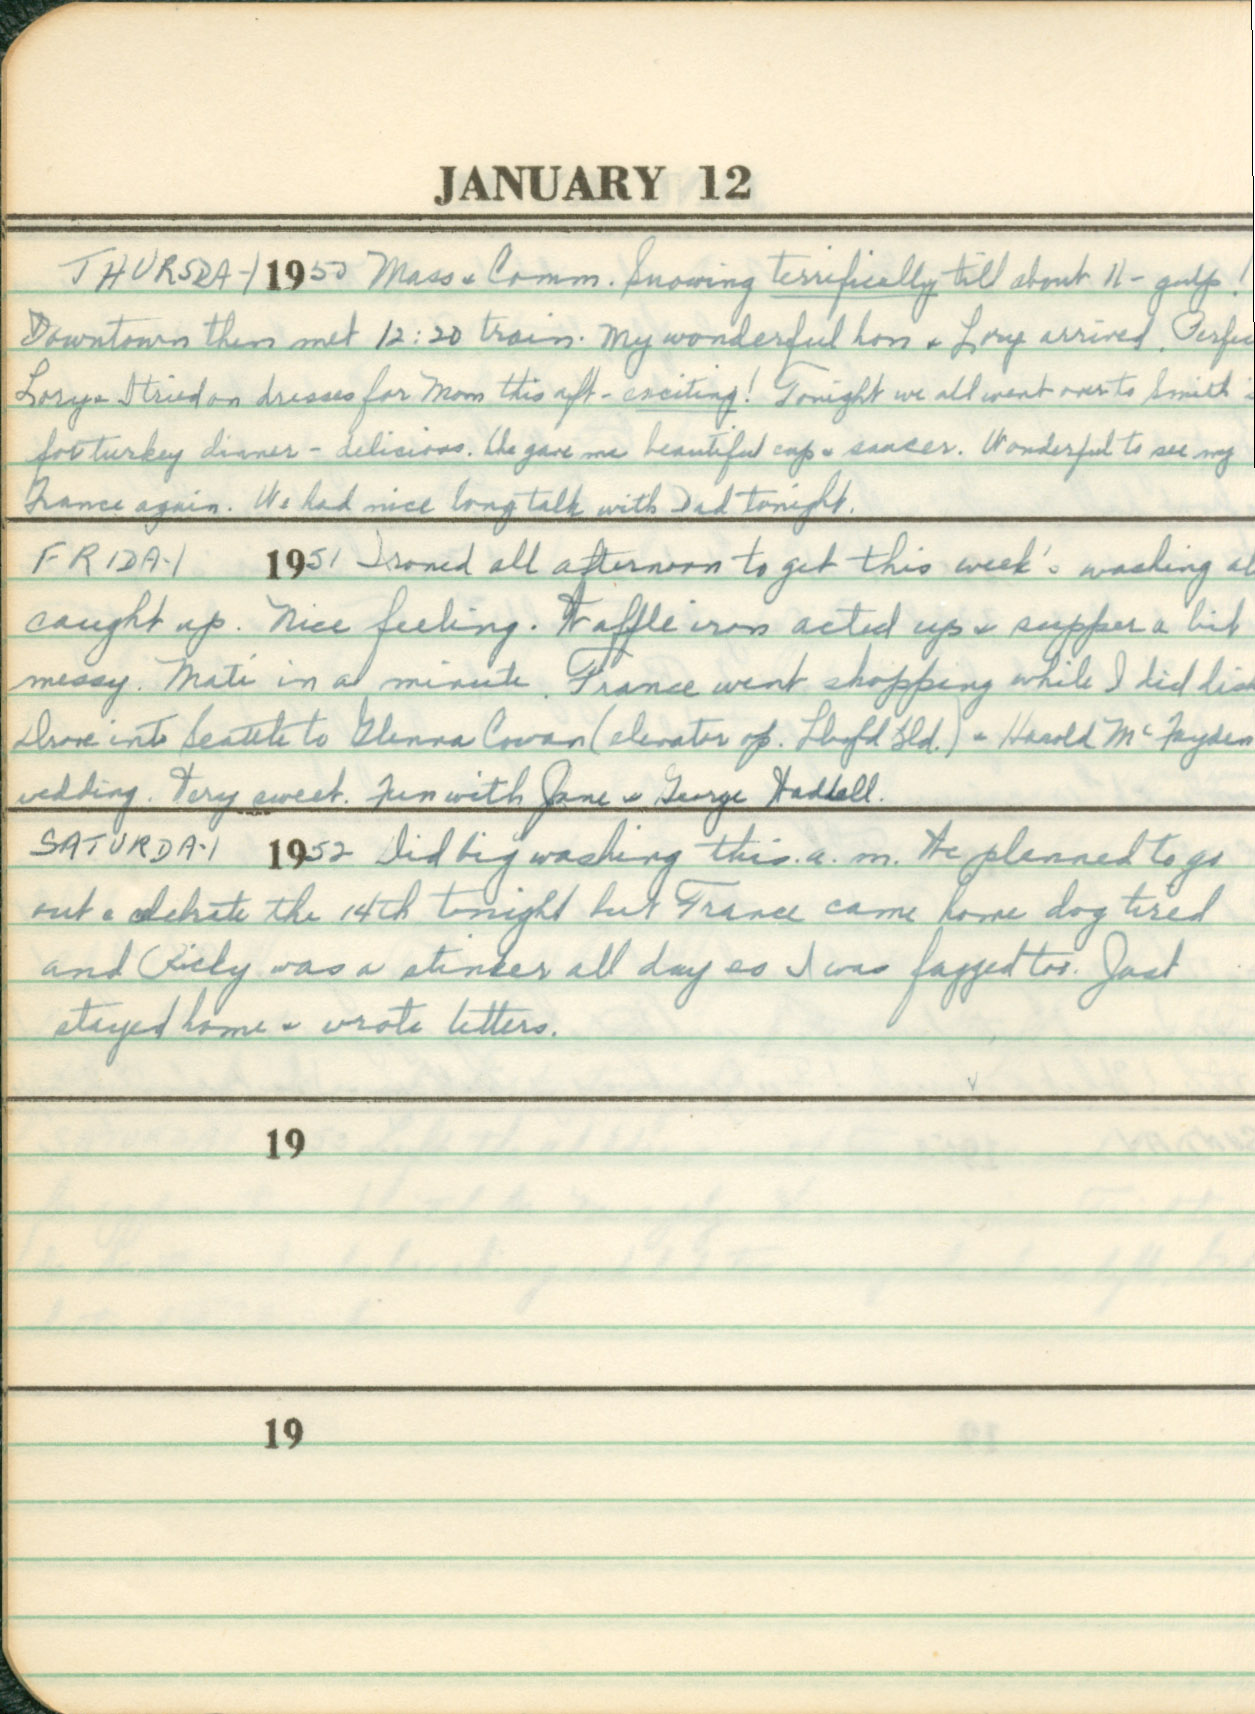 JANUARY 12
THURSDAY 1950 Mass & Comm. Snowing terrifically till about 11 - gulp!
Downtown then met 12:20 train. My wonderful hon & Lory arrived. Perfec
Lory & I tried on dresses for Mom this aft - exciting! Tonight we all went over to Smith
for turkey dinner - delicious. She gave me beautiful cup & saucer. Wonderful to see my
France again. We had nice long talk with Dad tonight.
FRIDAY 1951 Ironed all afternoon to get this week's washing al
caught up. Nice feeling. Waffle iron acted up & supper a bit
messy. Mati in a minute. France went shopping while I did dish
Drove into Seattle to Glenna Cowan (elevator op. Bld.) & Harold McFayden
wedding. Very sweet. Fun with Jane & George
SATURDAY 1952 Did big washing this a.m. We planned to go
out & celebrate the 14th tonight but France came home dog tired
and Ricky was a stinker all day so I was fagged too. Just
stayed home & wrote letters.
19
19